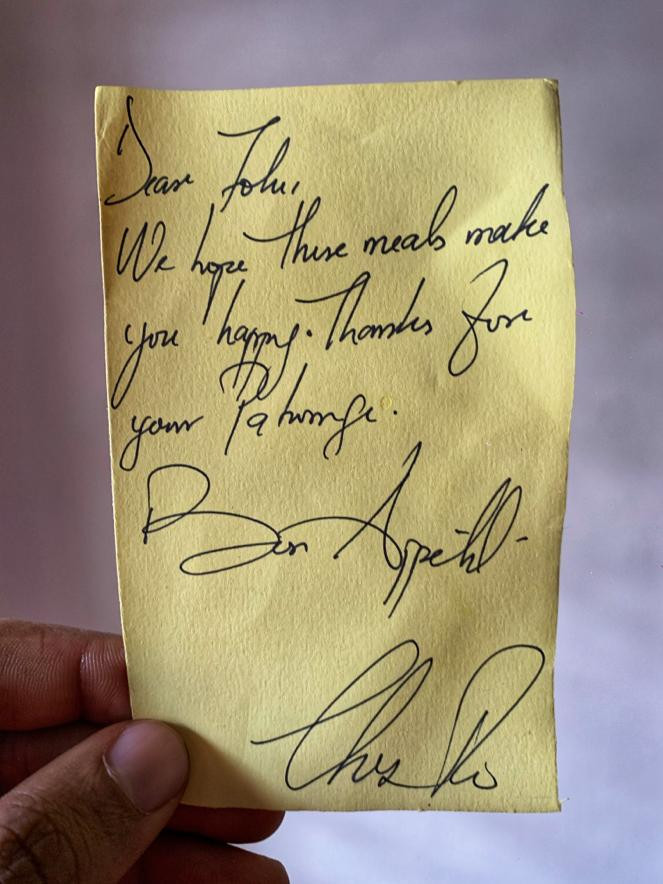 Dear John,
We hope these meals make
you happy. Thanks for
your Patronage.
Bon Appetit.